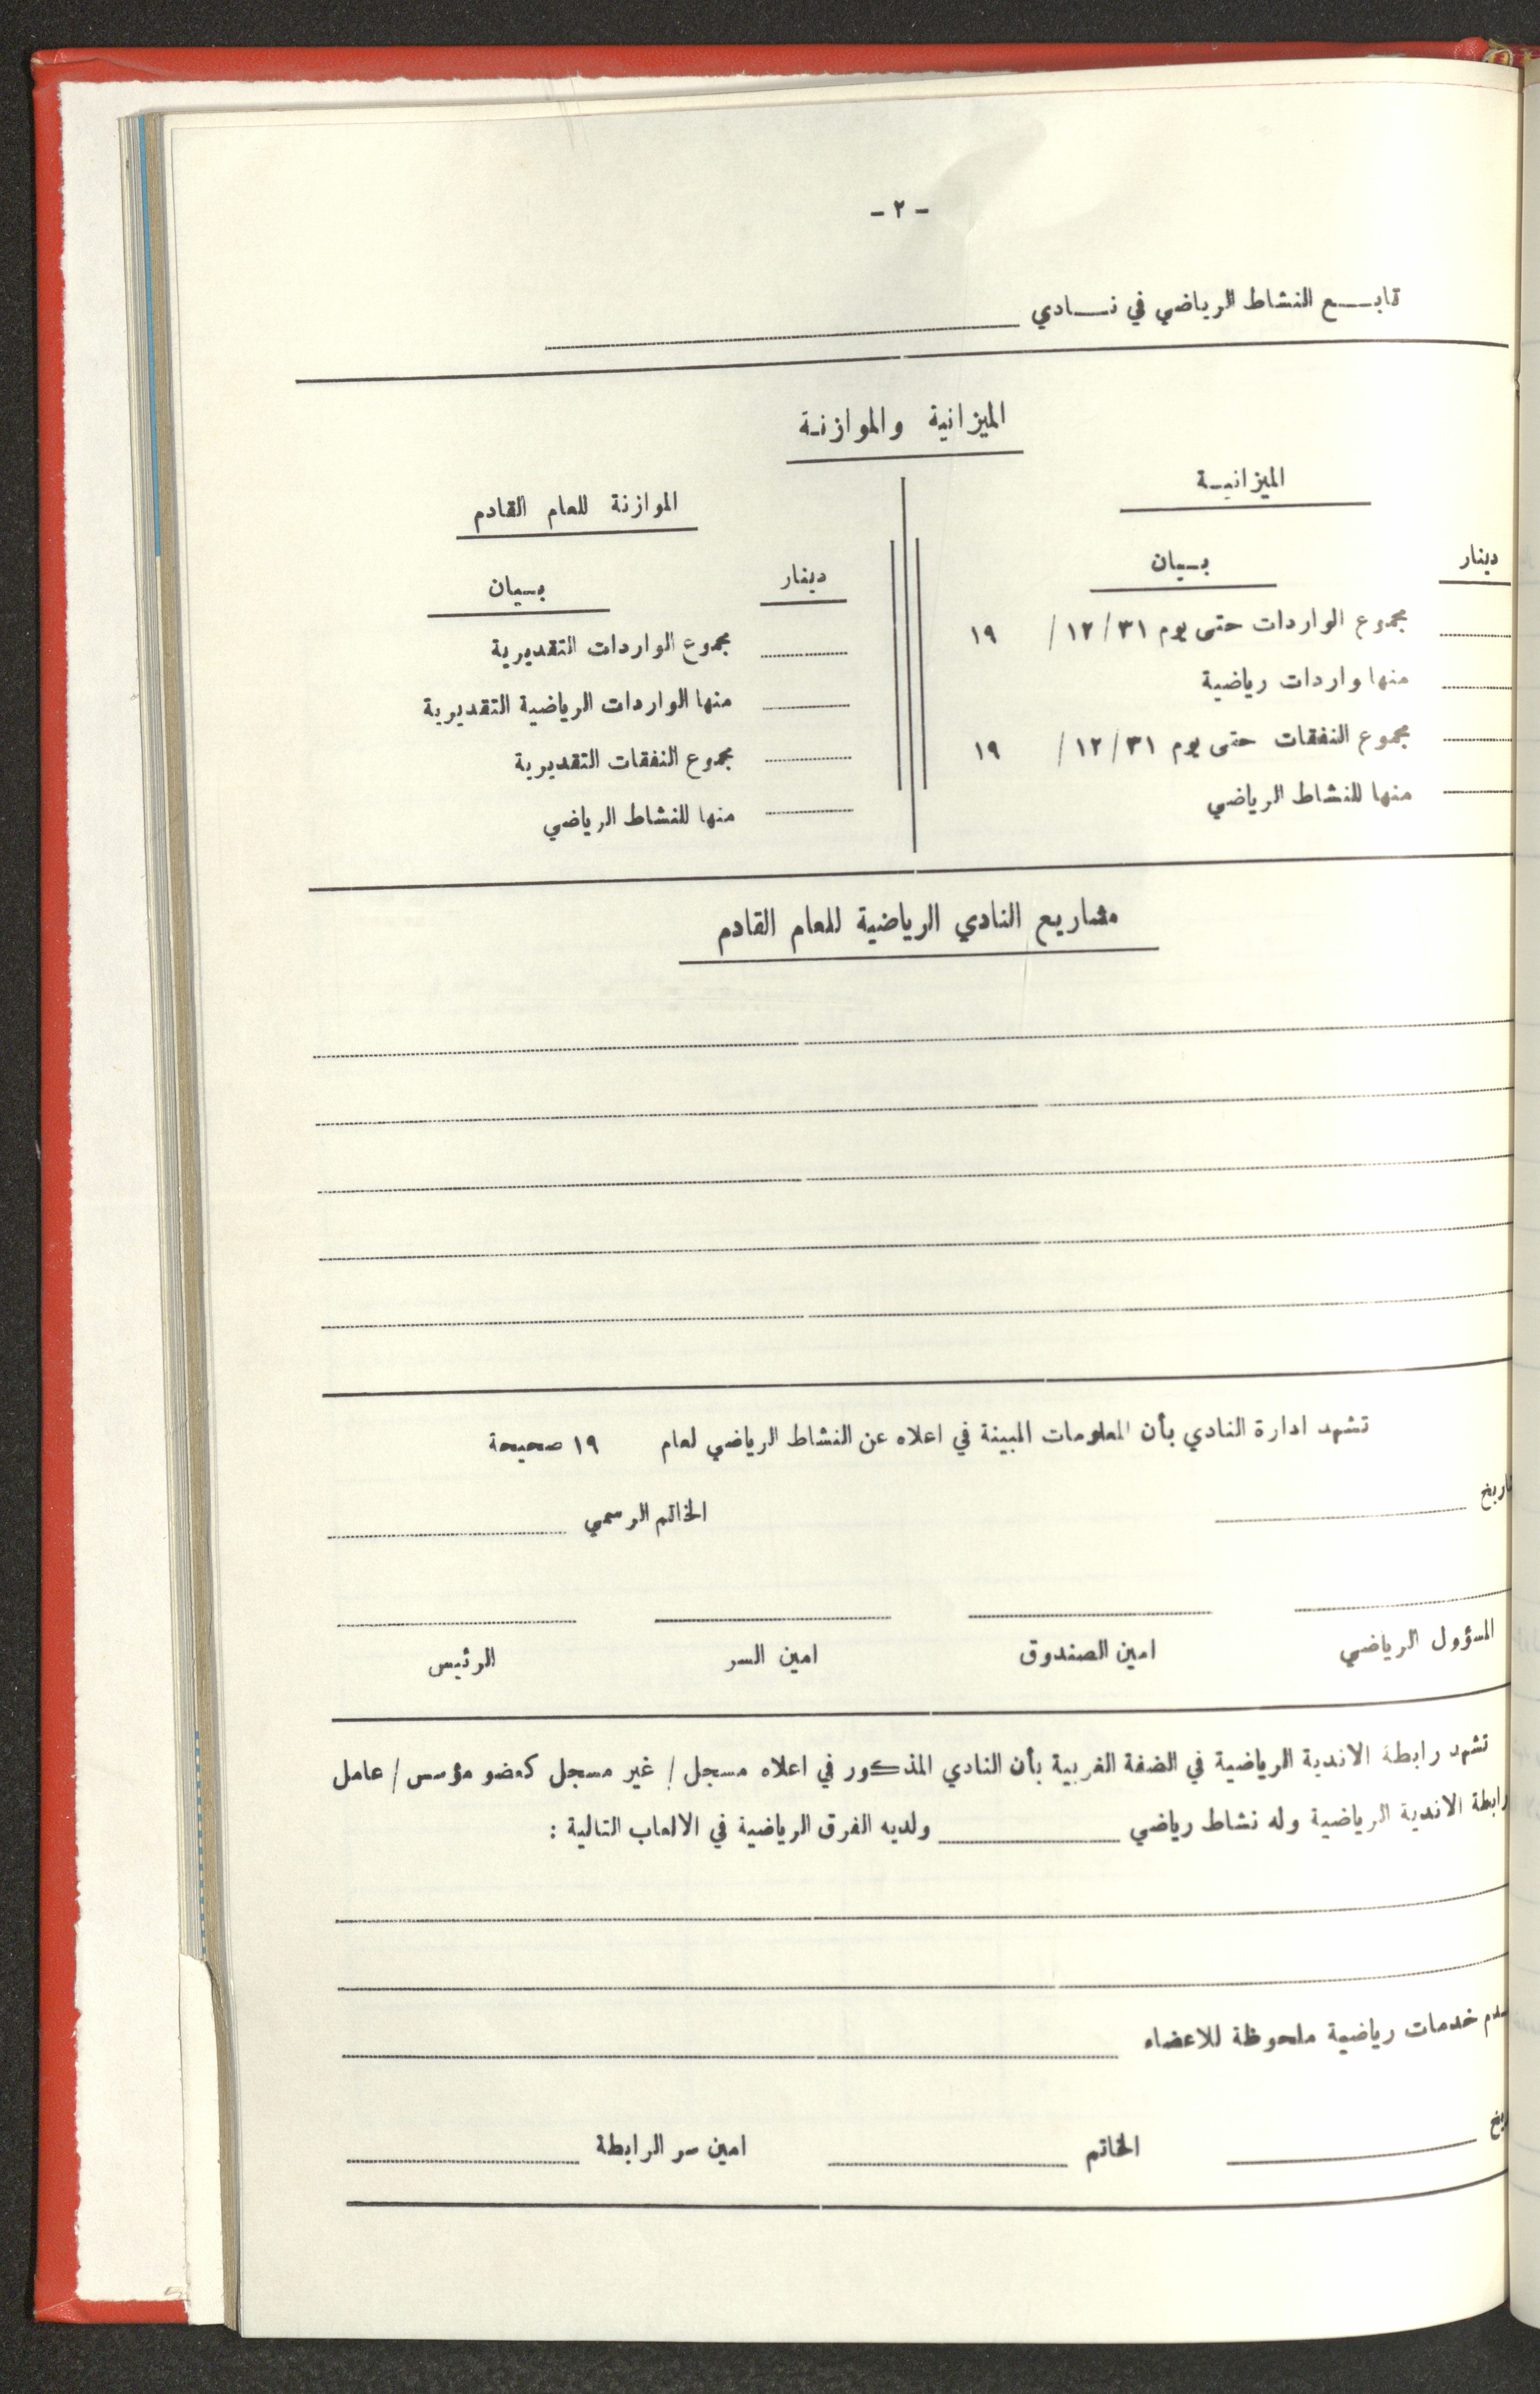 - ٢ -
تابـــع النشاط الرياضي في نـــادي
الميزانية والموازنـة
الميزانيـة
دينار
بـيان
مجموع الواردات حتى يوم ٣١ / ١٢ / ١٩
منها واردات رياضية
مجموع النفقات حتى يوم ٣١ / ١٢ / ١٩
منها للنشاط الرياضي
الموازنة للعام القادم
دينار
بـيان
مجموع الواردات التقديرية
منها الواردات الرياضية التقديرية
مجموع النفقات التقديرية
منها للنشاط الرياضي
مشاريع النادي الرياضية للعام القادم
تشهد ادارة النادي بأن المعلومات المبينة في اعلاه عن النشاط الرياضي لعام ١٩ صحيحة
الخاتم الرسمي
المسؤول الرياضي
امين الصندوق
امين السر
الرئيس
تشهد رابطة الاندية الرياضية في الضفة الغربية بأن النادي المذكور في اعلاه مسجل / غير مسجل كعضو مؤسس / عامل
رابطة الاندية الرياضية وله نشاط رياضي ولديه الفرق الرياضية في الالعاب التالية :
خدمات رياضية ملحوظة للاعضاء
الخاتم امين سر الرابطة